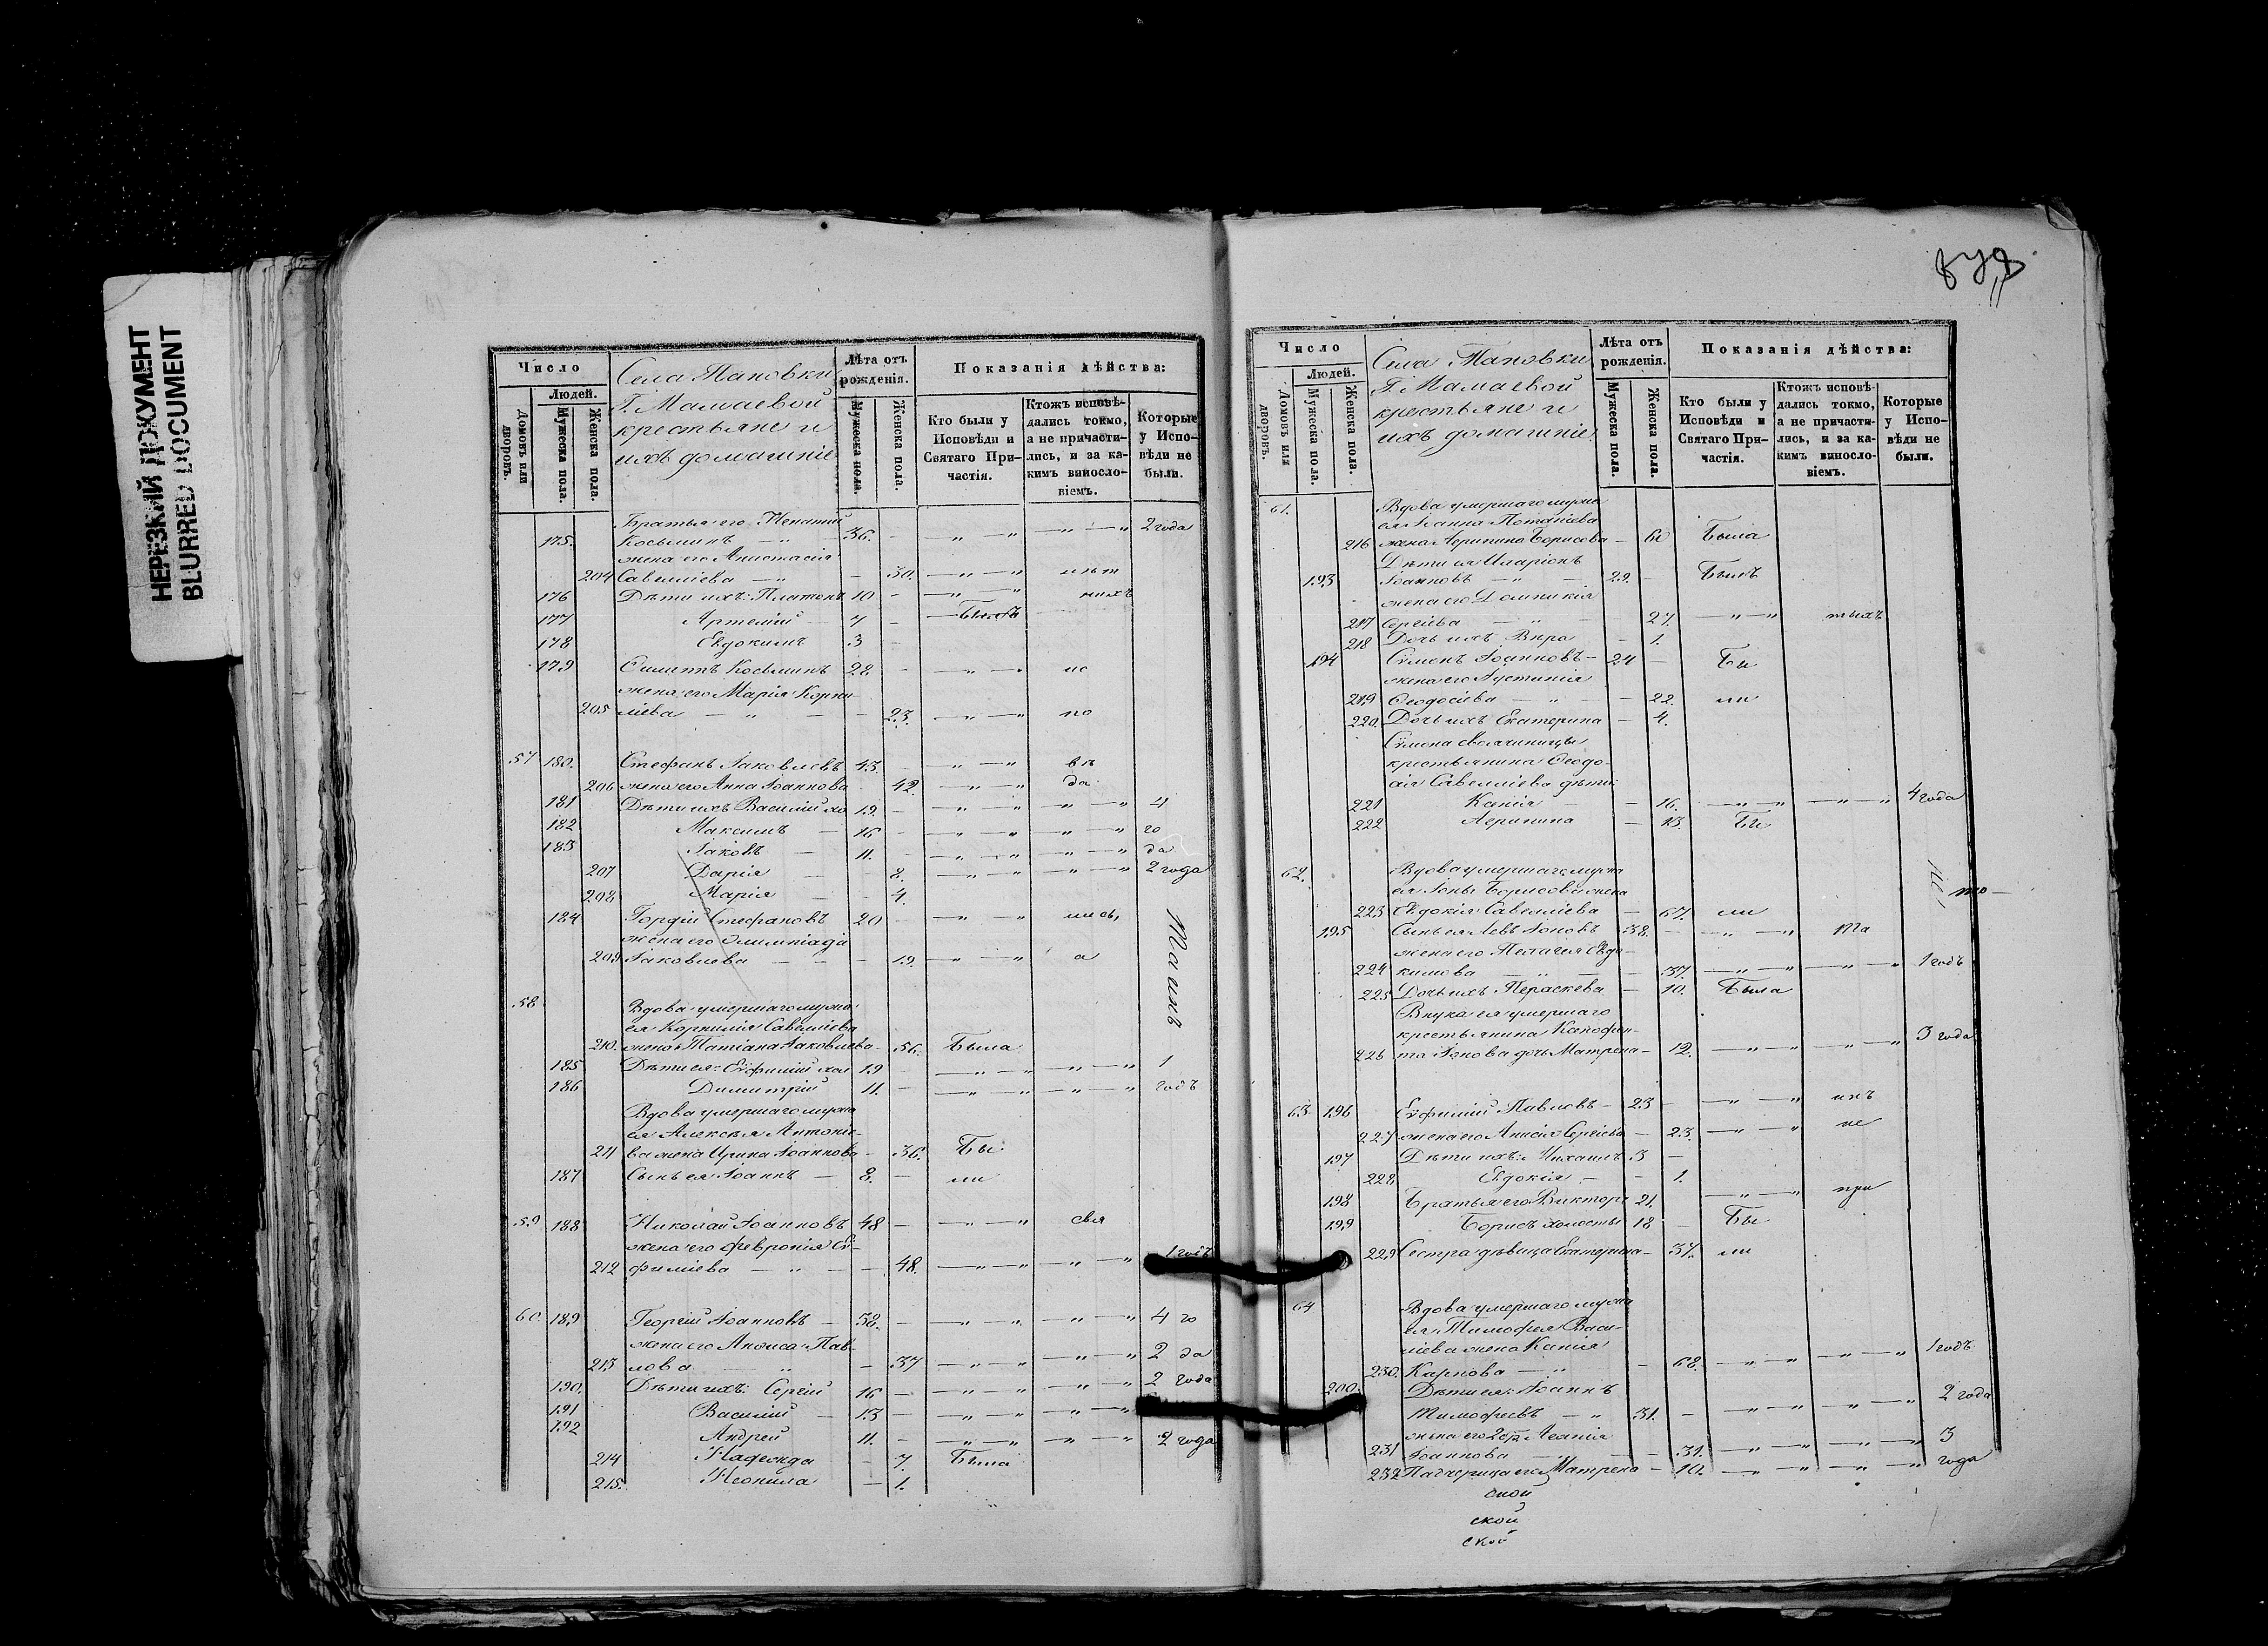 НЕРЕЗКИЙ ДОКУМЕНТ
BLURRED DOCUMENT
Число
Людей.
Домовъ или дворовъ.
Мужеска пола.
Женска пола.
Села Тановки
Г. Мамаевой
крестьяне и
ихъ домашніе
Лѣта отъ рожденія.
Мужеска пола.
Женска пола.
Показанія дѣйства:
Кто были у Исповѣди и Святаго При-частія.
Ктожъ исповѣ-дались токмо, а не причасти-лись, и за ка-кимъ винносло-віемъ.
Которые у Испо-вѣди не были.
Братья его
175. Косьминъ — 36. — 2 года
жена его Анастасія
204 Савеліева — 30.
176 Дѣти ихъ: Платонъ 10
177 Артемій 7 —
178 Евдокимъ 3 —
179 Косьминъ 28
жена его Марія Корни-
205 ліева — 23. по
57 180. Стефанъ Іаковлевъ 43.
206 жена его Анна Іоаннова 42. да
181 Дѣти ихъ Василій хо 19. 4
182 Максимъ — 16 го
183 Іаковъ — 11. да
207 Дарія 8. 2 года
208 Марія 4.
184 Гордій Стефановъ 20 лись,
жена его Олимпіада
209 Іаковлева — 19. а
58.
Вдова умершаго мужа
ея Корнилія Савеліева
210. жена Татіана Іаковлева 56. Была
185 Дѣти ея: Евфимій хол 19 1
186 Димитрій 11. годъ
Вдова умершаго мужа
ея Алексѣя Антоніе-
211 ва жена Ирина Іоаннова 36. Бы
187 Сынъ ея Іоаннъ — 8. ли
59 188 Николай Іоанновъ 48 — свя
жена его Февронія Ев-
212 фиміева — 48. 1 годъ
60. 189 Георгій Іоанновъ — 38. 4 го
жена его Анфиса Пав-
213 лова — 37 2 да
190. Дѣти ихъ: Сергій 16 — 2 года
191 Василій — 13 —
192 Андрей 11. — 2 года
214 Надежда — 7. Была
215. Неонила — 1.
Число
Людей.
Домовъ или дворовъ.
Мужеска пола.
Женска пола.
Села Тановки
Г. Мамаевой
крестьяне и
ихъ домашніе
Лѣта отъ рожденія.
Мужеска пола.
Женска пола.
Показанія дѣйства:
Кто были у Исповѣди и Святаго При-частія.
Ктожъ исповѣ-дались токмо, а не причасти-лись, и за ка-кимъ винносло-віемъ.
Которые у Испо-вѣди не были.
61. Вдова умершаго мужа
ея Іоанна Потапіева
216 жена Агрипина Борисова — 60 Была
Дѣти ея Иларіонъ
193 Іоанновъ — 29. — Былъ
жена его Домникія
217 Сергіева — 27.
218 Дочь ихъ Вѣра — 1.
194 Сѵмеонъ Іоанновъ — 24 — Бы
жена его Іустинія
219 Ѳеодосіева — 22. ли
220. Дочь ихъ Екатерина — 4.
Сѵмеона свояченицы
крестьянина Ѳеодо-
сія Савеліева дѣти:
221 Ксенія — 16. 4 года
222 Агрипина — 13. Бы
62. Вдова умершаго мужа
ея Іоны Борисова жена
223 Евдокія Савеліева — 67. ли
195 Сынъ ея Левъ Іоновъ 38. — Та
жена его Пелагея Евдо-
224 кимова — 37. 1 годъ
225 Дочь ихъ Параскева — 10. Была
Внука ея умершаго
крестьянина Ксенофон-
226 та Іонова дочь Матрена — 12. 3 года
63 196 Евфимій Павловъ — 23 — инъ
227 жена его Анисія Сергіева — 23. не
197 Дѣти ихъ: Михаилъ 3 —
228 Евдокія — 1.
198 Братья его Викторъ 21. при
199 Борисъ холостъ 18 — Бы
229 Сестра дѣвица Екатерина — 37. ли
64 Вдова умершаго мужа
ея Тимофея Васи-
ліева жена Ксенія
230. Карпова — 68. 1 годъ
200. Дѣти ея: Іоаннъ
Тимофеевъ — 31. — 2 года
231 Іоаннова — 31. 3
232 Падчерица его Матрена — 10. года
ской
ской